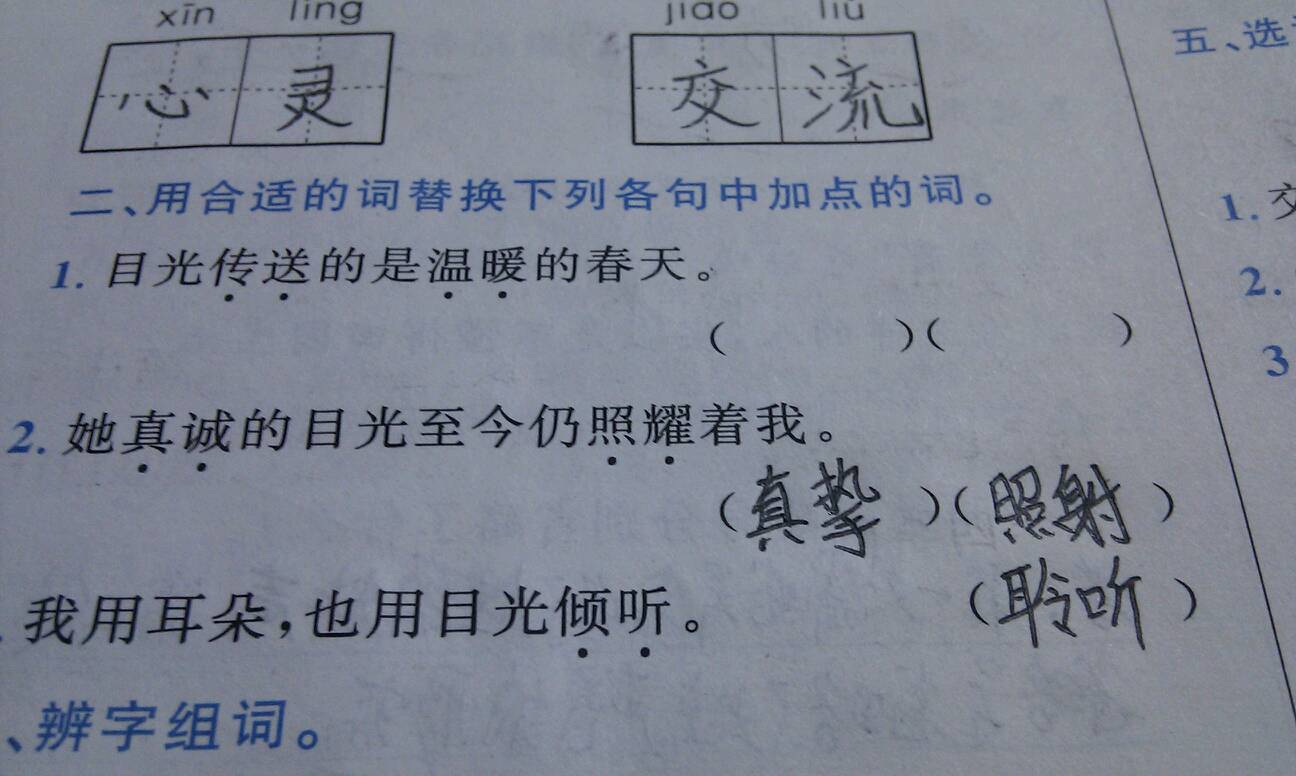 xīn líng jiāo liú
心灵 交流
二、用合适的词替换下列各句中加点的词。
1. 目光传送的是温暖的春天。
( )( )
2. 她真诚的目光至今仍照耀着我。
(真挚)(照射)
我用耳朵，也用目光倾听。 (聆听)
、辨字组词。
五、选
1. 交
2.
3